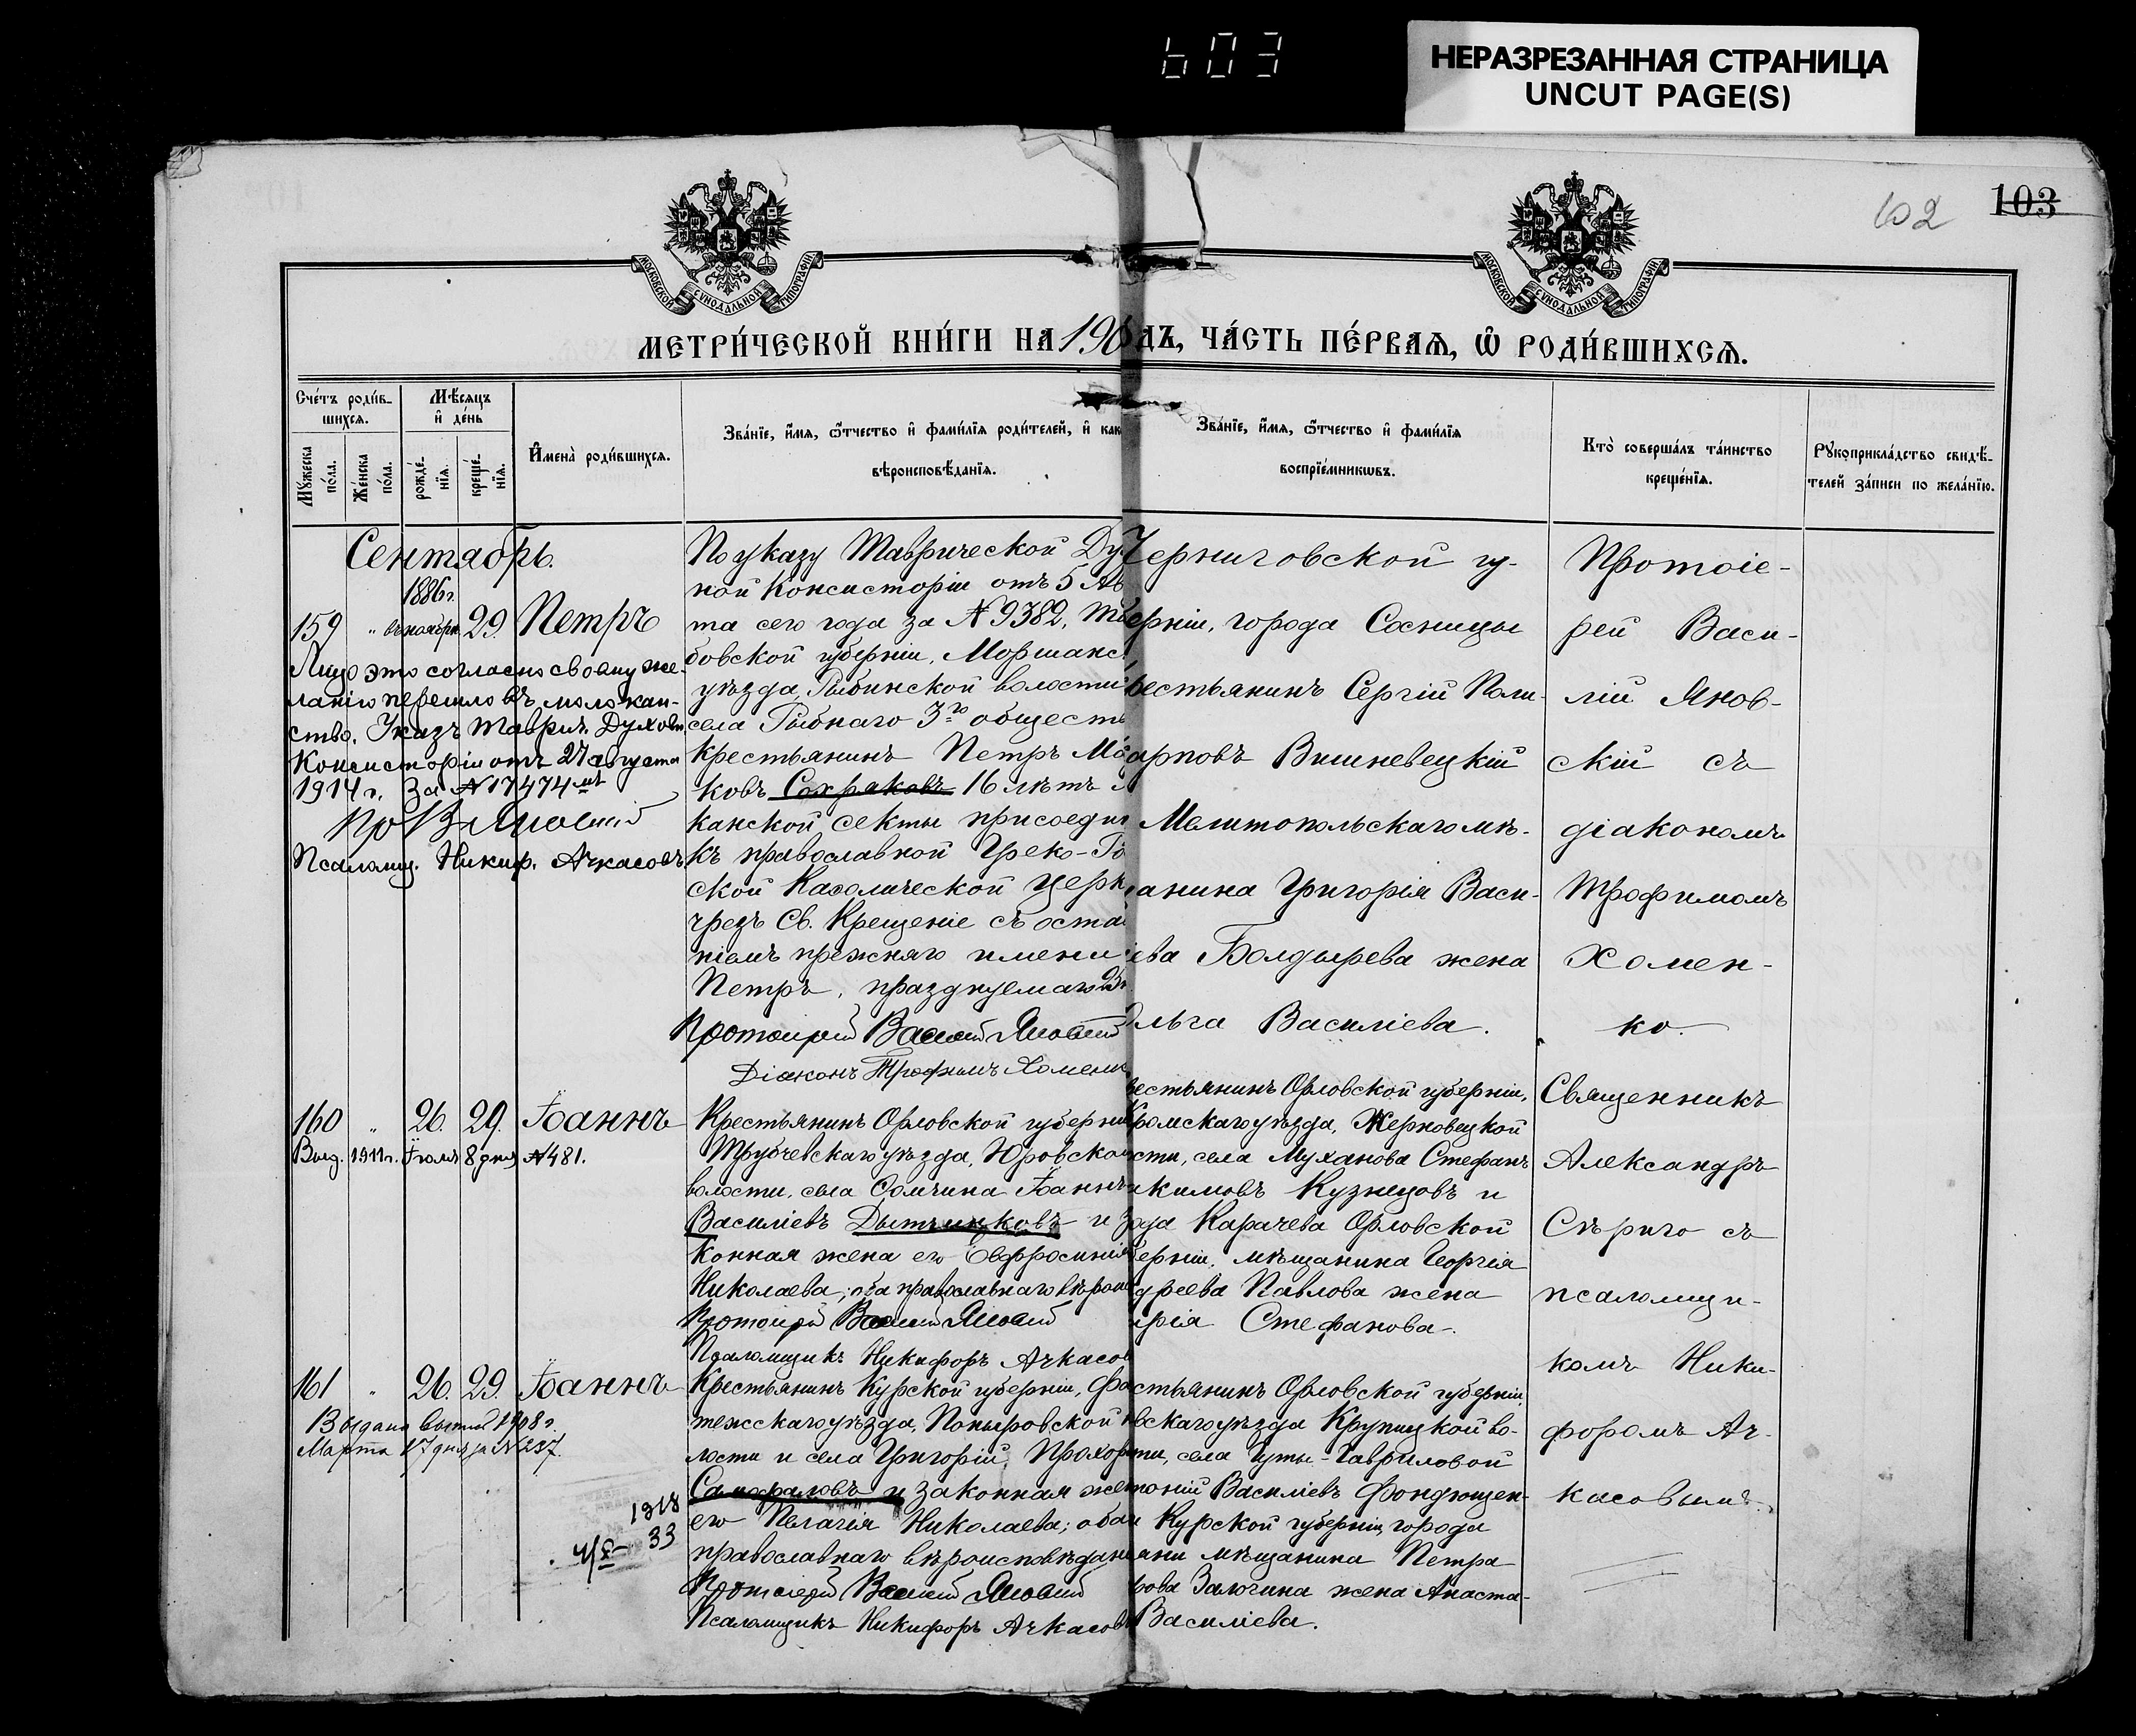 603
НЕРАЗРЕЗАННАЯ СТРАНИЦА
UNCUT PAGE(S)
102
103
МОСКОВСКОЙ СУНОДАЛЬНОЙ ТИПОГРАФІИ
МОСКОВСКОЙ СУНОДАЛЬНОЙ ТИПОГРАФІИ
МЕТРИ́ЧЕСКОЙ КНИ́ГИ НА 190
ДЪ, ЧА́СТЬ ПЕ́РВАѦ, Ѡ҆ РОДИ́ВШИХСѦ.
Сче́тъ роди́в-
шихся.
Мѣ́сяцъ
и҆ де́нь
Мꙋ́жеска
по́ла.
Же́нска
по́ла.
рожде́-
нїѧ.
креще́-
нїѧ.
И҆мена̀ роди́вшихся.
Зва́нїе, и҆́мѧ, ѻ҆́тчество и҆ фами́лїѧ роди́телей, и҆ как
вѣроисповѣ́данїѧ.
Зва́нїе, и҆́мѧ, ѻ҆́тчество и҆ фами́лїѧ
воспрїе́мникѡвъ.
Кто̀ соверша́лъ та́инство
креще́нїѧ.
Рꙋкоприкла́дство свидѣ́-
телей за́писи по жела́нїю.
Сентябрь.
1886г.
159 " въ ноябрѣ 29. Петръ
Лицо это согласно своему же-
ланію перешло въ молокан-
ство. Указъ Таврич. Духовн.
Консисторіи отъ 27 августа
1914 г. за № 17474мъ
Пр В Яновскій
Псаломщ. Никиф. Ачкасовъ
По указу Таврической Ду
ной Консисторіи отъ 5 Ав
та сего года за № 9382, Та
бовской губерніи, Моршанс
уѣзда, Рыбинской волости
села Рыбнаго 3го обществ
крестьянинъ Петръ Ма
ковъ 16 лѣтъ
канской секты присоеди
къ православной Греко-Ро
ской Каѳолической Церк
чрезъ Св. Крещеніе съ оста
ніемъ прежняго имени
Петръ, празднуемаго
Протоіерей Василій Яновскій
Діаконъ Трофимъ Хоменк
Черниговской гу-
ерніи, города Сосницы
рестьянинъ Сергій Поли-
арповъ Вишневецкій
Мелитопольскаго мѣ-
анина Григорія Васи-
іева Болдырева жена
Ольга Василіева.
Протоіе-
рей Васи-
лій Янов-
скій съ
діакономъ
Трофимомъ
Хомен-
ко.
160 " 26. 29. Іоаннъ
Выд. 1911г. Іюля 8 дня №481.
Крестьянинъ Орловской губерніи
Трубчевскаго уѣзда, Юровской
волости, села Сомчина Іоаннъ
Василіевъ и за
конная жена его Евфросинія
Николаева; оба православнаго вѣрои
Протоіерей Василій Яновскій
Псаломщикъ Никифоръ Ачкасов
рестьянинъ Орловской губерніи,
Кромскаго уѣзда, Жерновецкой
сти, села Муханова Стефанъ
кимовъ Кузнецовъ и
ода Карачева Орловской
берніи, мѣщанина Георгія
дреева Павлова жена
рія Стефанова.
Священникъ
Александръ
Сѣриго съ
псаломщи-
комъ Ники-
форомъ Ач-
касовымъ.
161 " 26. 29. Іоаннъ
Выдана выпись 1908 г.
Марта 17 дня за № 237.
1918
33
Крестьянинъ Курской губерніи, Фа
тежскаго уѣзда, Поныровской в
лости и села Григорій Прохор
и законная же
его Пелагія Николаева; оба
православнаго вѣроисповѣдан
Протоіерей Василій Яновскій
Псаломщикъ Никифоръ Ачкасов
стьянинъ Орловской губерніи,
вскаго уѣзда Крупицкой во-
ти, села Гуты-Гавриловой
тоній Василіевъ
и Курской губерніи, города
мѣщанина Петра
жена Анаста-
Василіева.